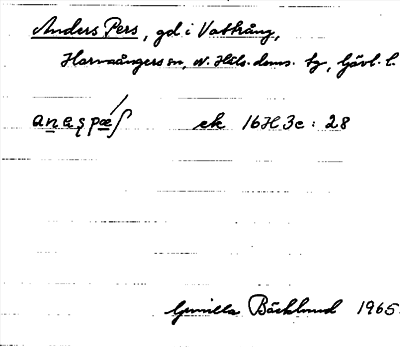 Anders Pers, gd i Vattrång,
Harmångers sn, N. Häls. doms. tg, Gävl. l.
anaşpæʃ ek 16H3e: 28
Gunilla Bäcklund 1965.